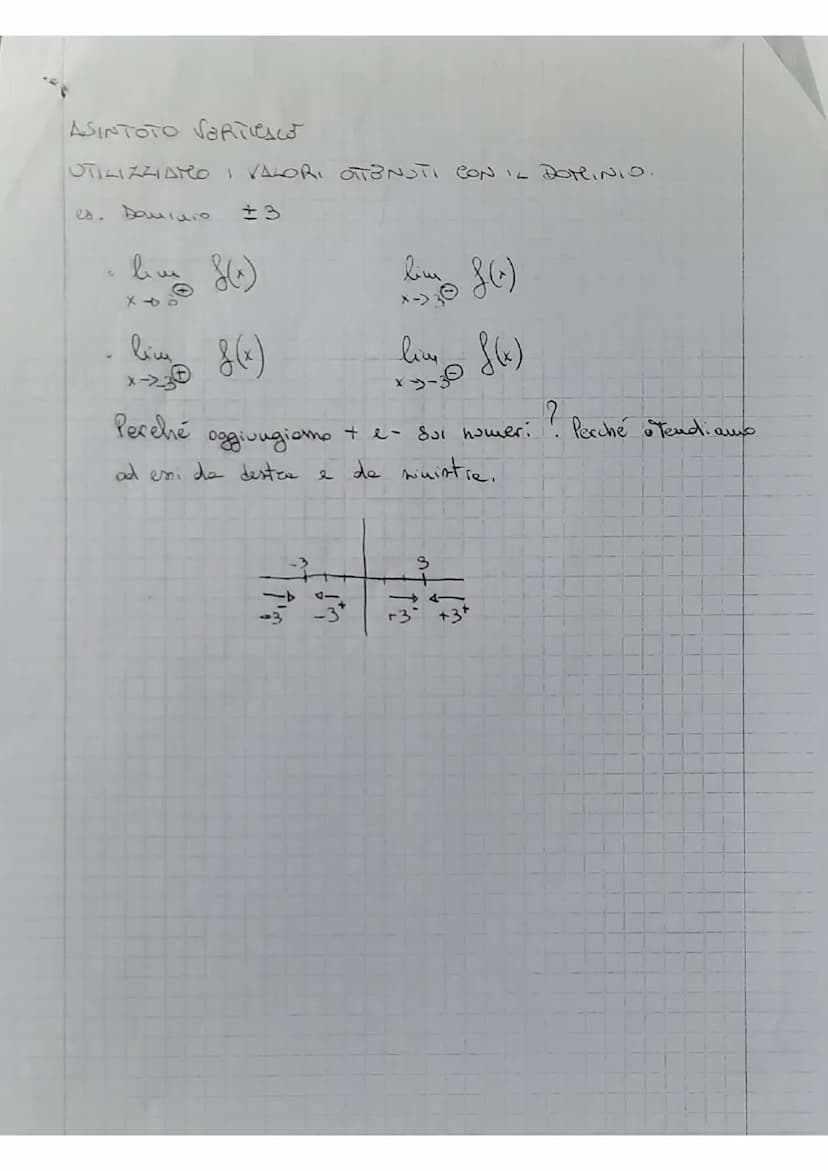 ASINTOTO VERTICALE
UTILIZZIAMO I VALORI OTTENUTI CON IL DOMINIO.
es. Dominio ±3
lim f(x) lim f(x)
x→3⁺ x→3⁻
lim f(x) lim f(x)
x→-3⁺ x→-3⁻
Perché aggiungiamo + e - sui numeri? Perché tendiamo
ad essi da destra e da sinistra.
-3 3
-3⁻ -3⁺ +3⁻ +3⁺